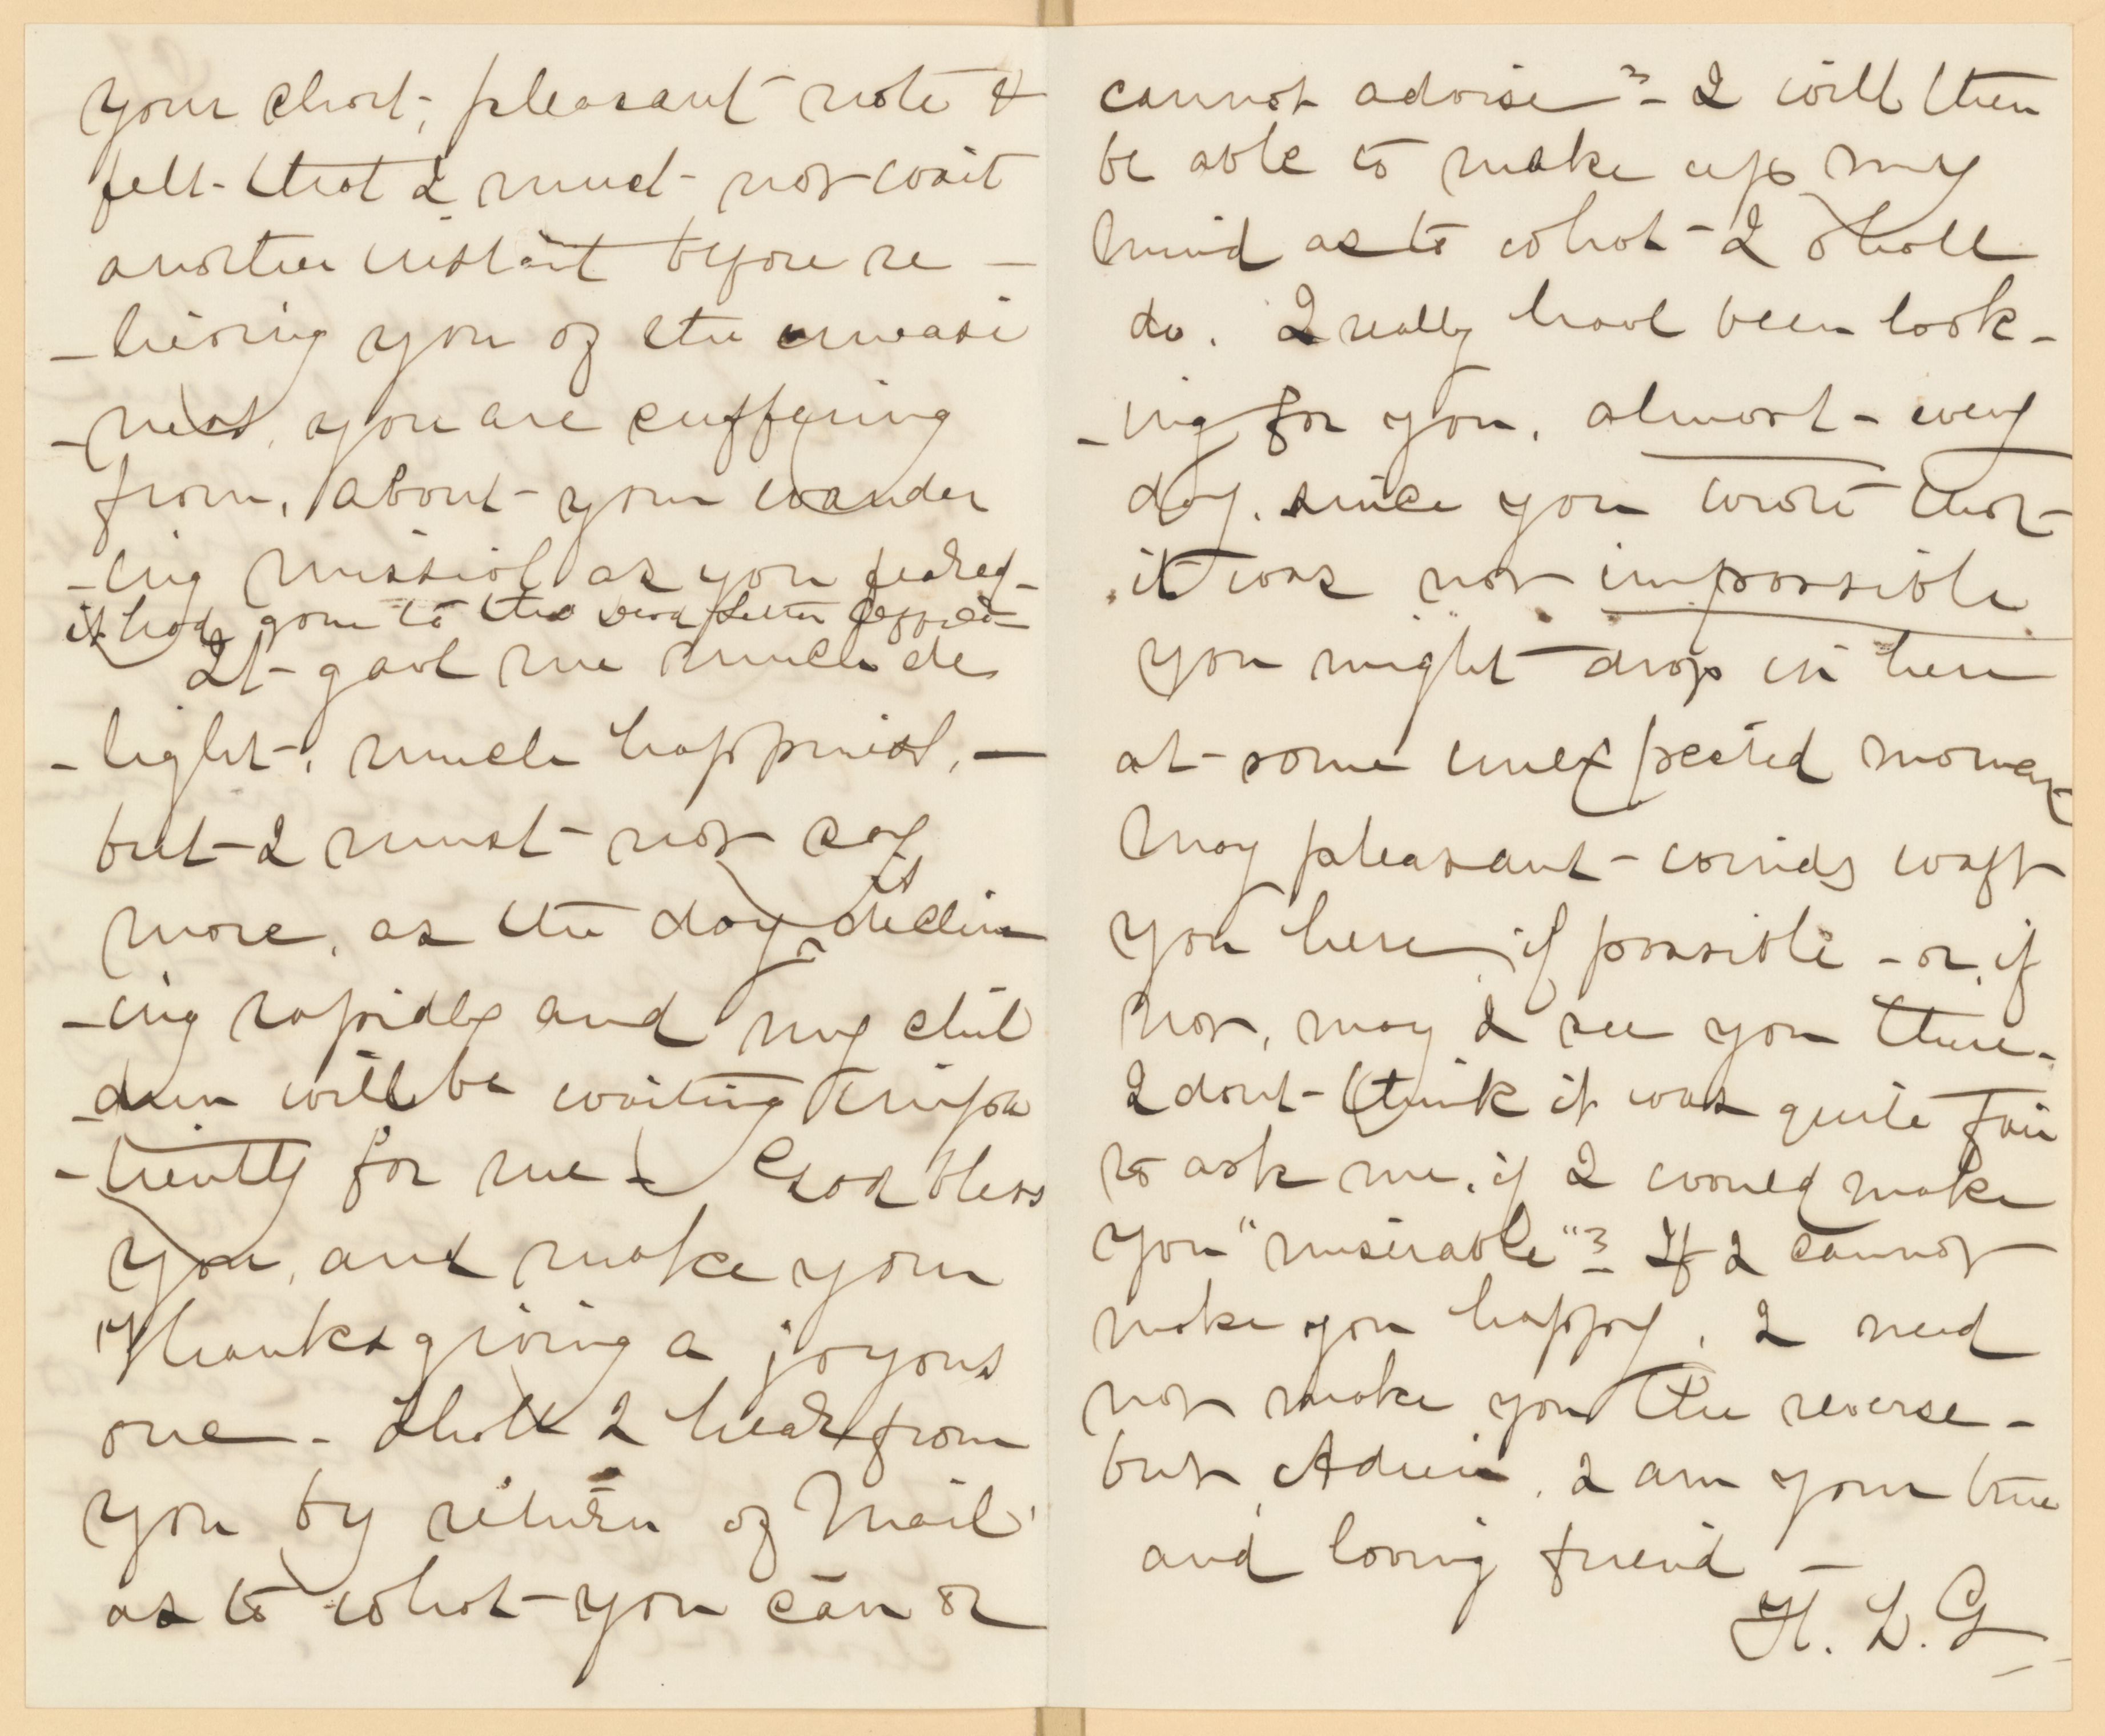 your short, pleasant note &
felt that I must not wait
another instant before re -
- lieving you of the uneasi
- ness, you are suffering
from, about your wander
- ing missive as you feared -
it had gone to the dead letter
It gave me much de
- light, much happiness, —
but I must not say
more, as the day is declin
- ing rapidly and my chil
- dren will be waiting impa
- tiently for me - God bless
you, and make your
Thanksgiving a joyous
one - Shall I hear from
you by return of Mail
as to what you can or
cannot advise? - I will then
be able to make up my
mind as to what I shall
do. I really have been look -
- ing for you, almost - every
day, since you wrote that
it was not impossible
you might drop in here
at some unexpected moment
May pleasant winds waft
you here, if possible - or if
not, may I see you there.
I dont think it was quite fair
to ask me, if I would make
you "miserable"? - If I cannot
make you happy, I need
not make you the reverse -
but, I am your true
and loving friend -
H. L. G